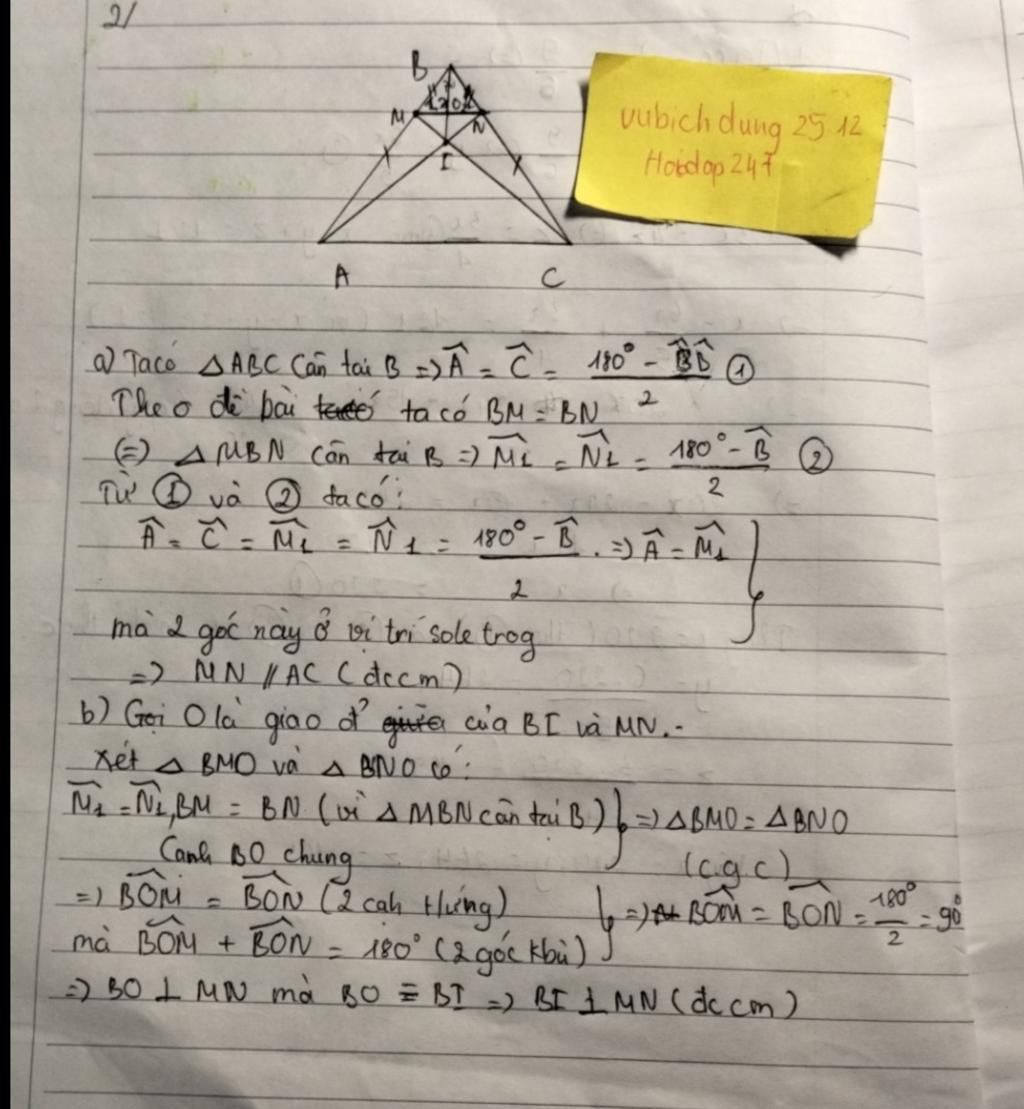 2/
B
M 1 2 O 1 N
I
A C
vubichdung 25 12
Hoidap 247
a) Ta có △ABC cân tại B => Â = Ĉ = (180° - B̂B̂)/2 ①
Theo đề bài ta có BM = BN
(=) △MBN cân tại B => M̂1 = N̂1 = (180° - B̂)/2 ②
Từ ① và ② ta có:
Â = Ĉ = M̂1 = N̂1 = (180° - B̂)/2 . => Â = M̂1 }
mà 2 góc này ở vị trí sole trog
=> MN // AC (đccm)
b) Gọi O là giao đ' của BI và MN.-
Xét △ BMO và △ BNO có:
M̂1 = N̂1, BM = BN (vì △ MBN cân tại B) } => △BMO = △BNO
Cạnh BO chung (c.g.c)
=> BÔM = BÔN (2 cạh tứng) } => BÔM = BÔN = 180°/2 = 90°
mà BÔM + BÔN = 180° (2 góc kbù)
=> BO ⊥ MN mà BO ≡ BI => BI ⊥ MN (đccm)